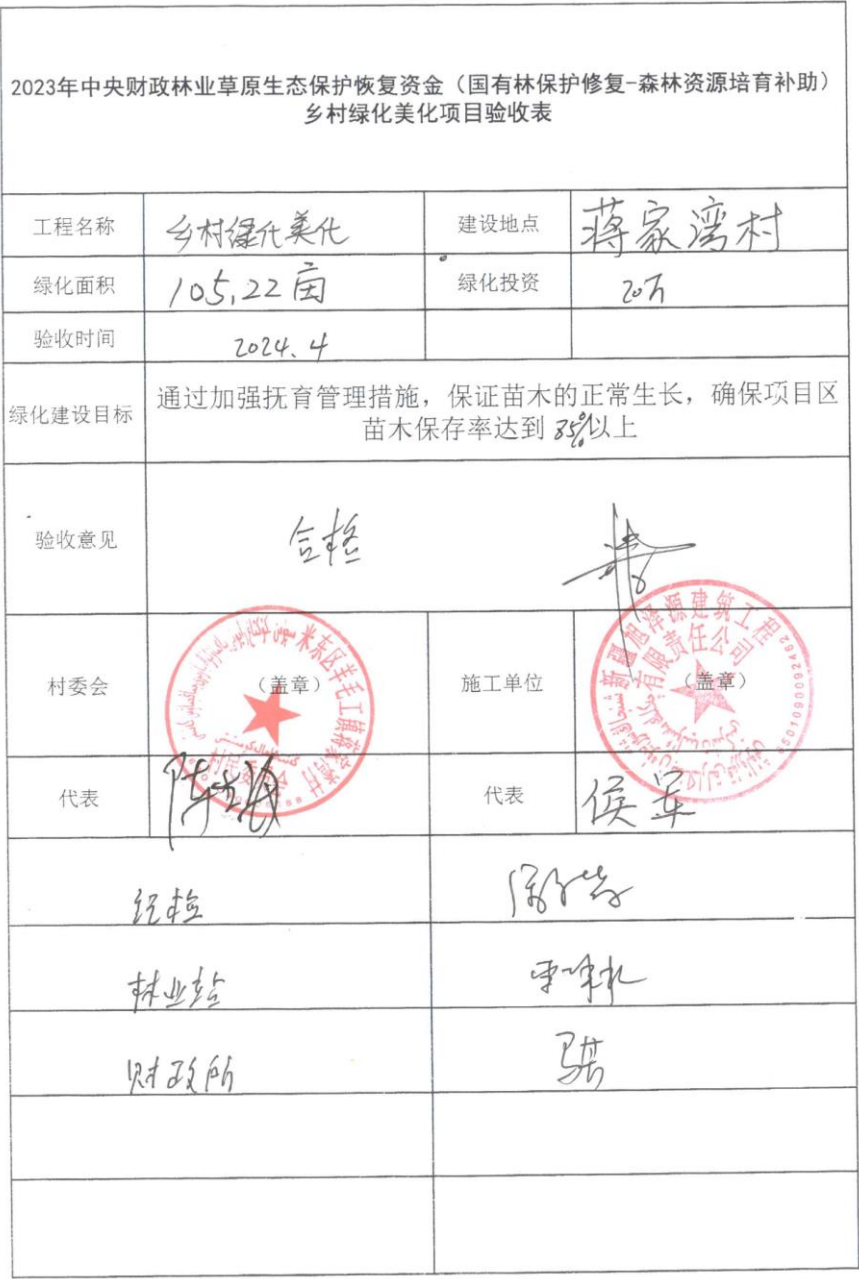 2023年中央财政林业草原生态保护恢复资金（国有林保护修复-森林资源培育补助）
乡村绿化美化项目验收表
工程名称 乡村绿化美化 建设地点 蒋家湾村
绿化面积 105.22亩 绿化投资 20万
验收时间 2024.4
绿化建设目标 通过加强抚育管理措施，保证苗木的正常生长，确保项目区
苗木保存率达到85%以上
验收意见 合格
村委会 （盖章） 施工单位 （盖章）
米东区羊毛工镇蒋家湾村
村民委员会
新疆旭泽源建筑工程
有限责任公司
代表 代表 侯军
纪检
林业站
财政所